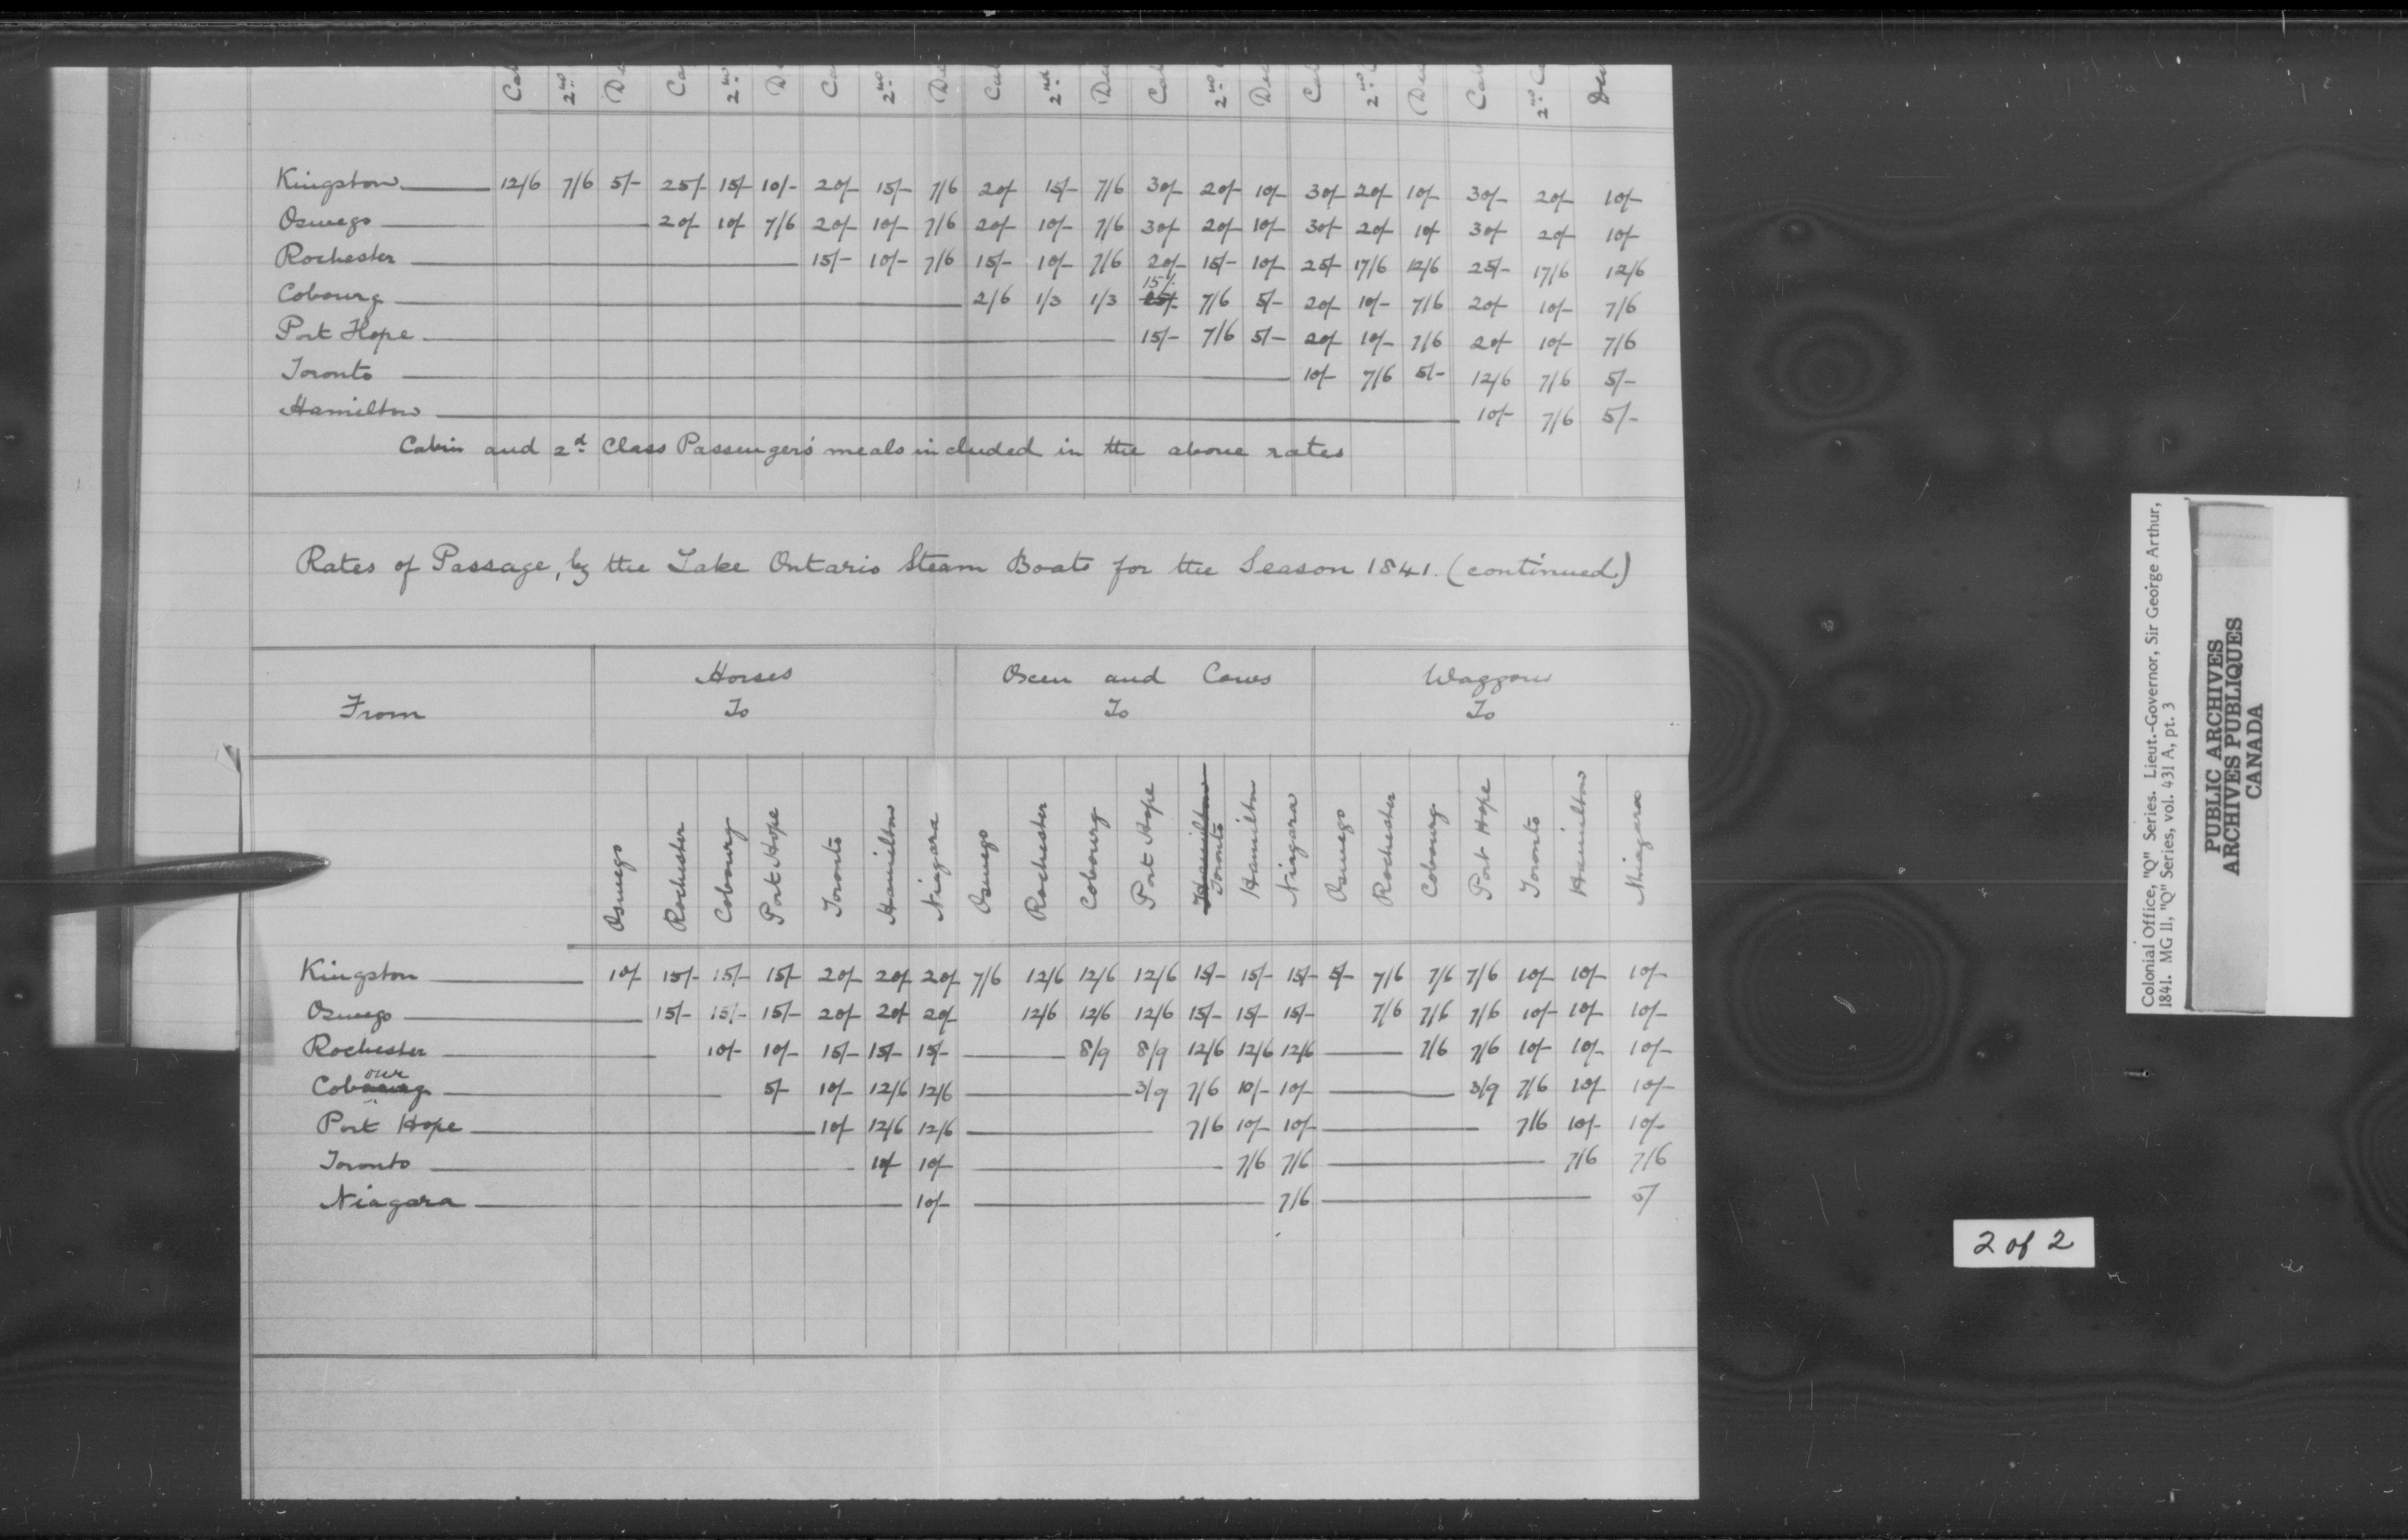 Kingston 12/6 7/6 5/- 25/- 15/- 10/- 20/- 15/- 7/6 20/- 15/- 7/6 30/- 20/- 10/- 30/- 20/- 10/- 30/- 20/- 10/-
Oswego 20/- 10/- 7/6 20/- 10/- 7/6 20/- 10/- 7/6 30/- 20/- 10/- 30/- 20/- 10/- 30/- 20/- 10/-
Rochester 15/- 10/- 7/6 15/- 10/- 7/6 20/- 15/- 10/- 25/- 17/6 12/6 25/- 17/6 12/6
Cobourg 2/6 1/3 1/3 15/- 7/6 5/- 20/- 10/- 7/6 20/- 10/- 7/6
Port Hope 15/- 7/6 5/- 20/- 10/- 7/6 20/- 10/- 7/6
Toronto 10/- 7/6 5/- 12/6 7/6 5/-
Hamilton 10/- 7/6 5/-
Cabin and 2d Class Passengers' meals included in the above rates
Rates of Passage, by the Lake Ontario Steam Boats for the Season 1841. (continued)
From Horses To Oxen and Cows To Waggons To
Oswego Rochester Cobourg Port Hope Toronto Hamilton Niagara Oswego Rochester Cobourg Port Hope Hamilton Toronto Hamilton Niagara Oswego Rochester Cobourg Port Hope Toronto Hamilton Niagara
Kingston 10/- 15/- 15/- 15/- 20/- 20/- 20/- 7/6 12/6 12/6 12/6 15/- 15/- 15/- 5/- 7/6 7/6 7/6 10/- 10/- 10/-
Oswego 15/- 15/- 15/- 20/- 20/- 20/- 12/6 12/6 12/6 15/- 15/- 15/- 7/6 7/6 7/6 10/- 10/- 10/-
Rochester 10/- 10/- 15/- 15/- 15/- 8/9 8/9 12/6 12/6 12/6 7/6 7/6 10/- 10/- 10/-
Cobourg 5/- 10/- 12/6 12/6 3/9 7/6 10/- 10/- 3/9 7/6 10/- 10/-
Port Hope 10/- 12/6 12/6 7/6 10/- 10/- 7/6 10/- 10/-
Toronto 10/- 10/- 7/6 7/6 7/6 7/6
Niagara 10/- 7/6 5/
Colonial Office, "Q" Series. Lieut.-Governor, Sir George Arthur,
1841. MG 11, "Q" Series, vol. 431 A, pt. 3
PUBLIC ARCHIVES
ARCHIVES PUBLIQUES
CANADA
2 of 2